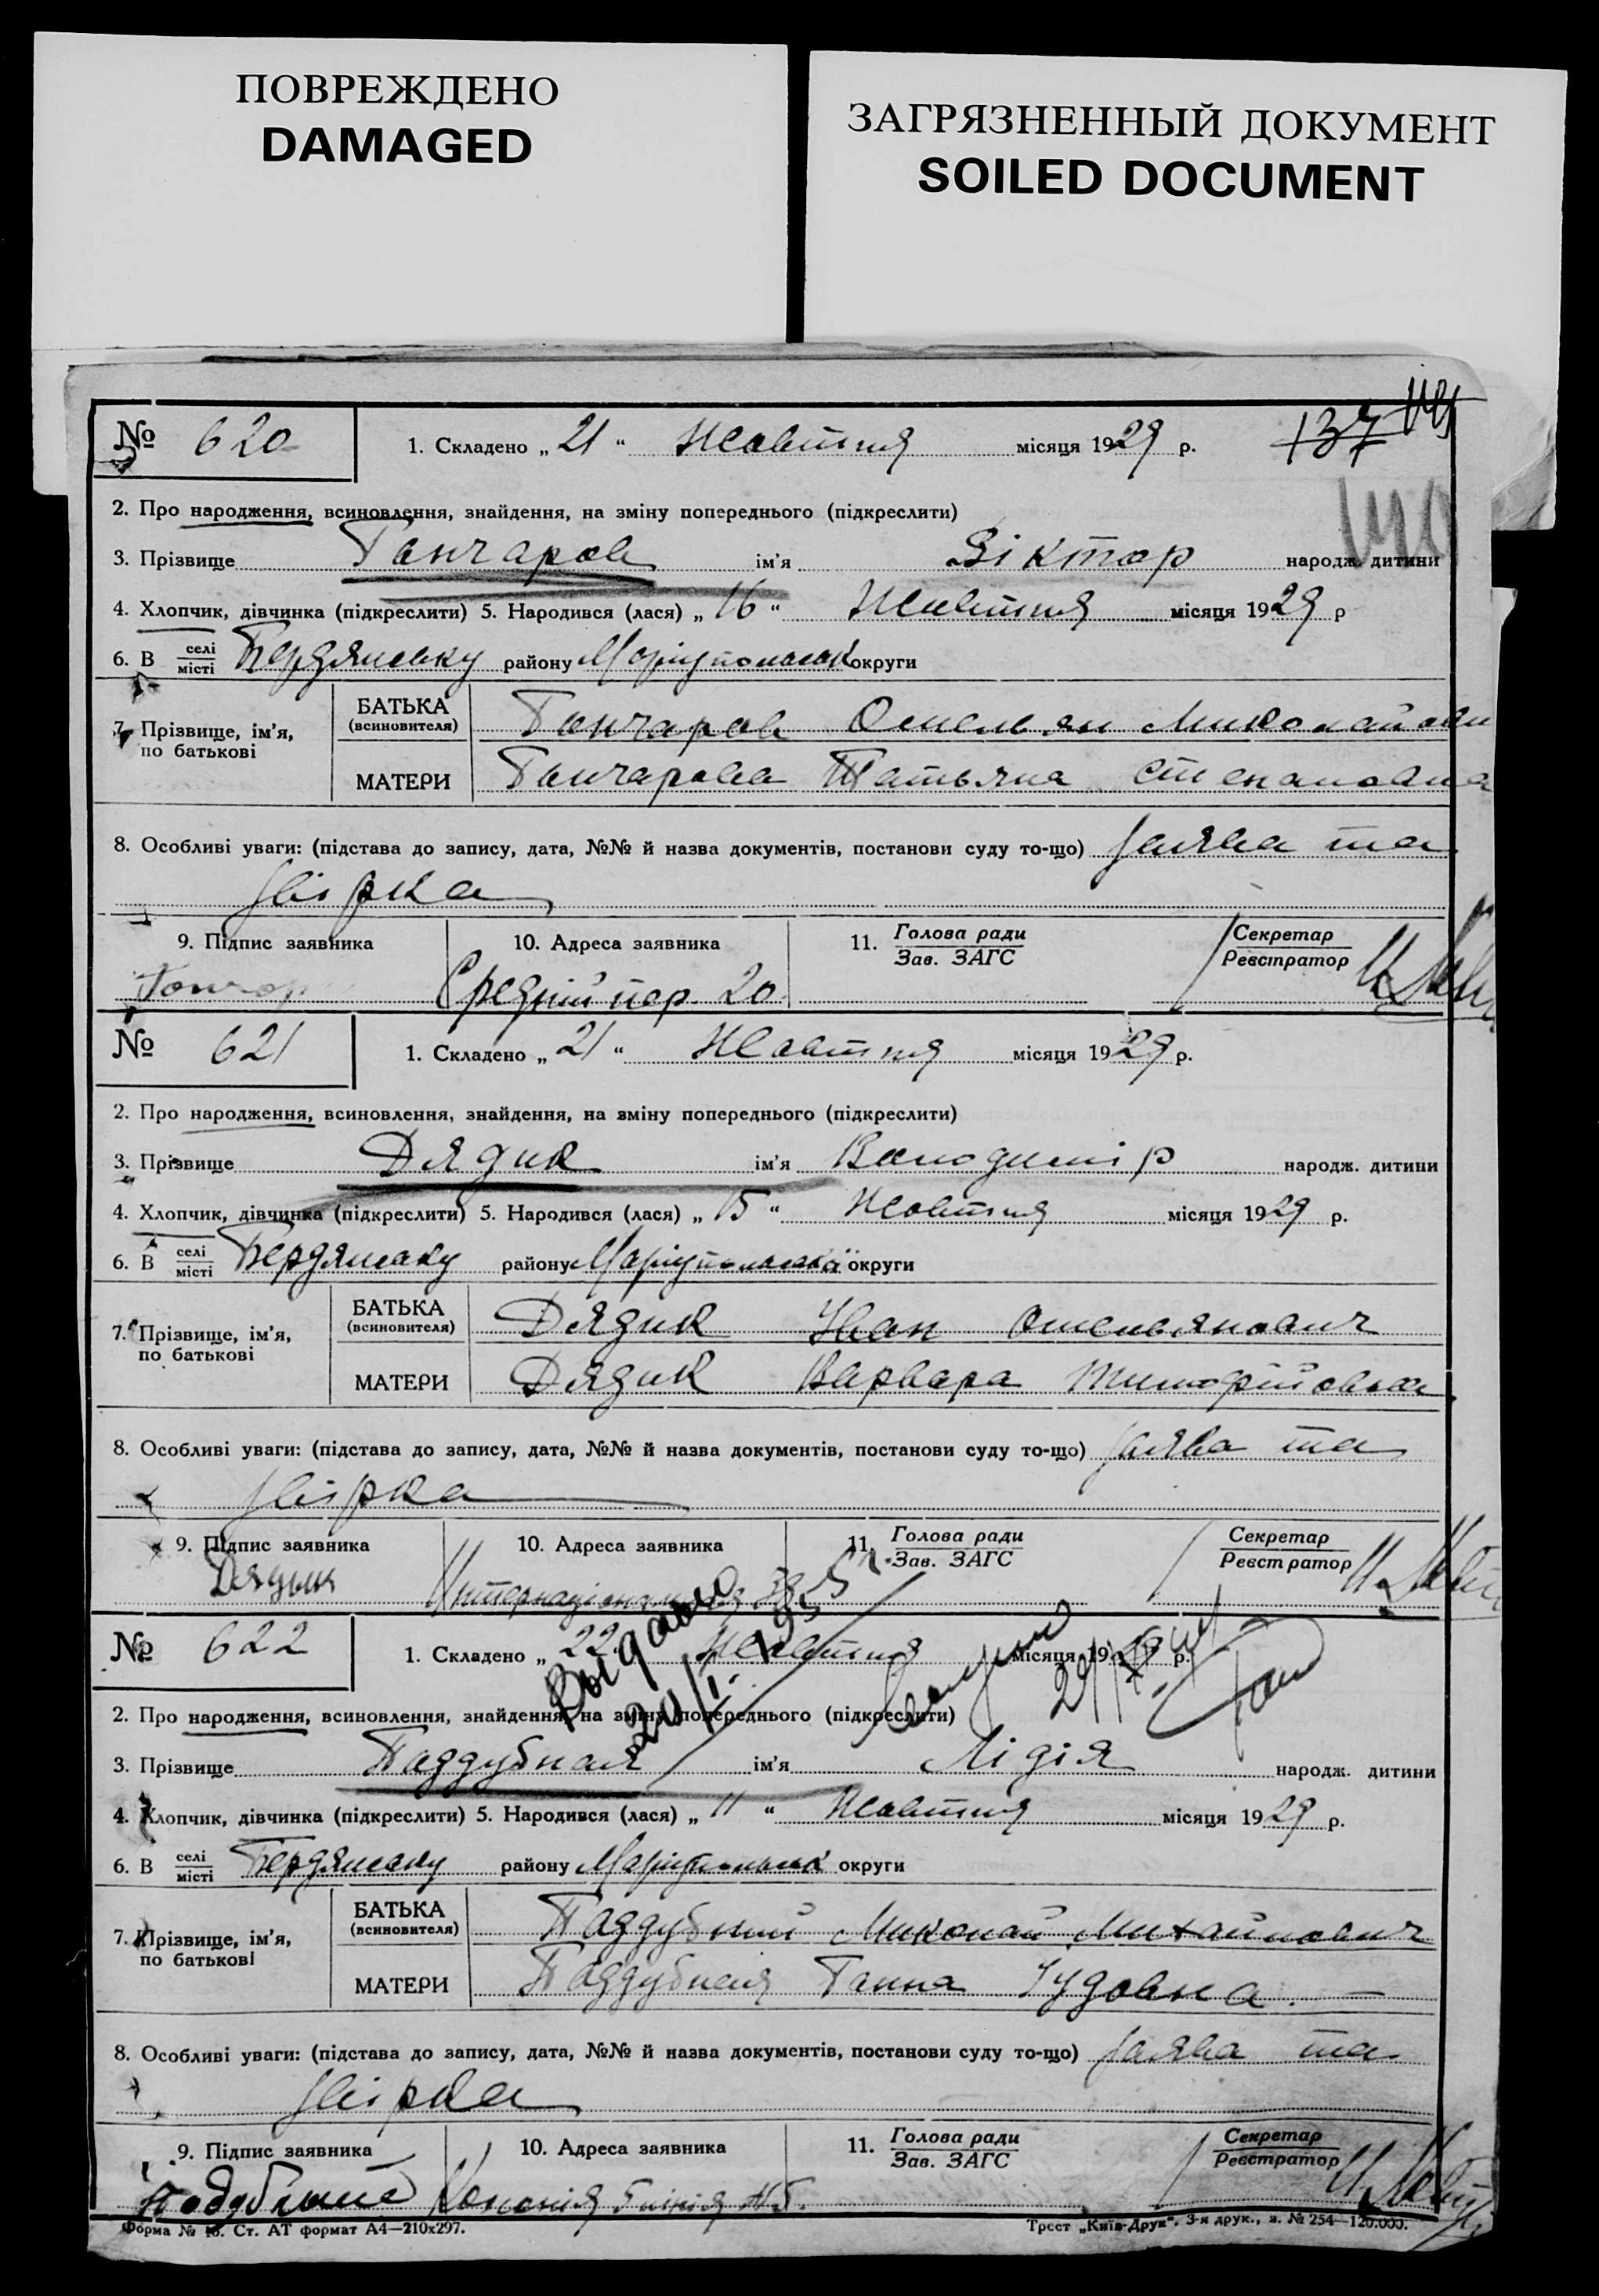 ПОВРЕЖДЕНО
DAMAGED
ЗАГРЯЗНЕННЫЙ ДОКУМЕНТ
SOILED DOCUMENT
№ 620
1. Складено „ 21 “ Жовтня місяця 1929 р.
137
140
2. Про народження, всиновлення, знайдення, на зміну попереднього (підкреслити)
3. Прізвище Гончаров ім'я Віктор народж. дитини
4. Хлопчик, дівчинка (підкреслити) 5. Народився (лася) „ 16 “ Жовтня місяця 1929 р
6. В селі місті Бердянську району Маріупольськ округи
7. Прізвище, ім'я, по батькові
БАТЬКА (всиновителя) Гончаров Омельян Миколайови
МАТЕРИ Гончарова Татьяна Степановна
8. Особливі уваги: (підстава до запису, дата, №№ й назва документів, постанови суду то-що) Заява та
звірка
9. Підпис заявника
10. Адреса заявника
11. Голова ради Зав. ЗАГС
Секретар Реєстратор
Гончар Средній пер. 20
№ 621
1. Складено „ 21 “ Жовтня місяця 1929 р.
2. Про народження, всиновлення, знайдення, на зміну попереднього (підкреслити)
3. Прізвище Дядик ім'я Володимір народж. дитини
4. Хлопчик, дівчинка (підкреслити) 5. Народився (лася) „ 15 “ Жовтня місяця 1929 р.
6. В селі місті Бердянську району Маріупольської округи
7. Прізвище, ім'я, по батькові
БАТЬКА (всиновителя) Дядик Іван Омельянович
МАТЕРИ Дядик Варвара Тимофійовна
8. Особливі уваги: (підстава до запису, дата, №№ й назва документів, постанови суду то-що) Заява та
звірка
9. Підпис заявника
10. Адреса заявника
11. Голова ради Зав. ЗАГС
Секретар Реєстратор
Дядык Интернаціональная 38
№ 622
1. Складено „ 22 “ Жовтня місяця 1929 р.
Выдано
20/I-1955 г.
2. Про народження, всиновлення, знайдення, на зміну попереднього (підкреслити)
3. Прізвище Паддубная ім'я Лідія народж. дитини
4. Хлопчик, дівчинка (підкреслити) 5. Народився (лася) „ 11 “ Жовтня місяця 1929 р.
6. В селі місті Бердянську району Маріупольськ округи
7. Прізвище, ім'я, по батькові
БАТЬКА (всиновителя) Паддубний Миколай Михайлович
МАТЕРИ Паддубная Ганна Іудовна. —
8. Особливі уваги: (підстава до запису, дата, №№ й назва документів, постанови суду то-що) Заява та
звірка
9. Підпис заявника
10. Адреса заявника
11. Голова ради Зав. ЗАГС
Секретар Реєстратор
Колонія
Форма № 16. Ст. АТ формат А4—210х297.
Трест „Київ-Друк“. 3-я друк., з. № 254—120.000.